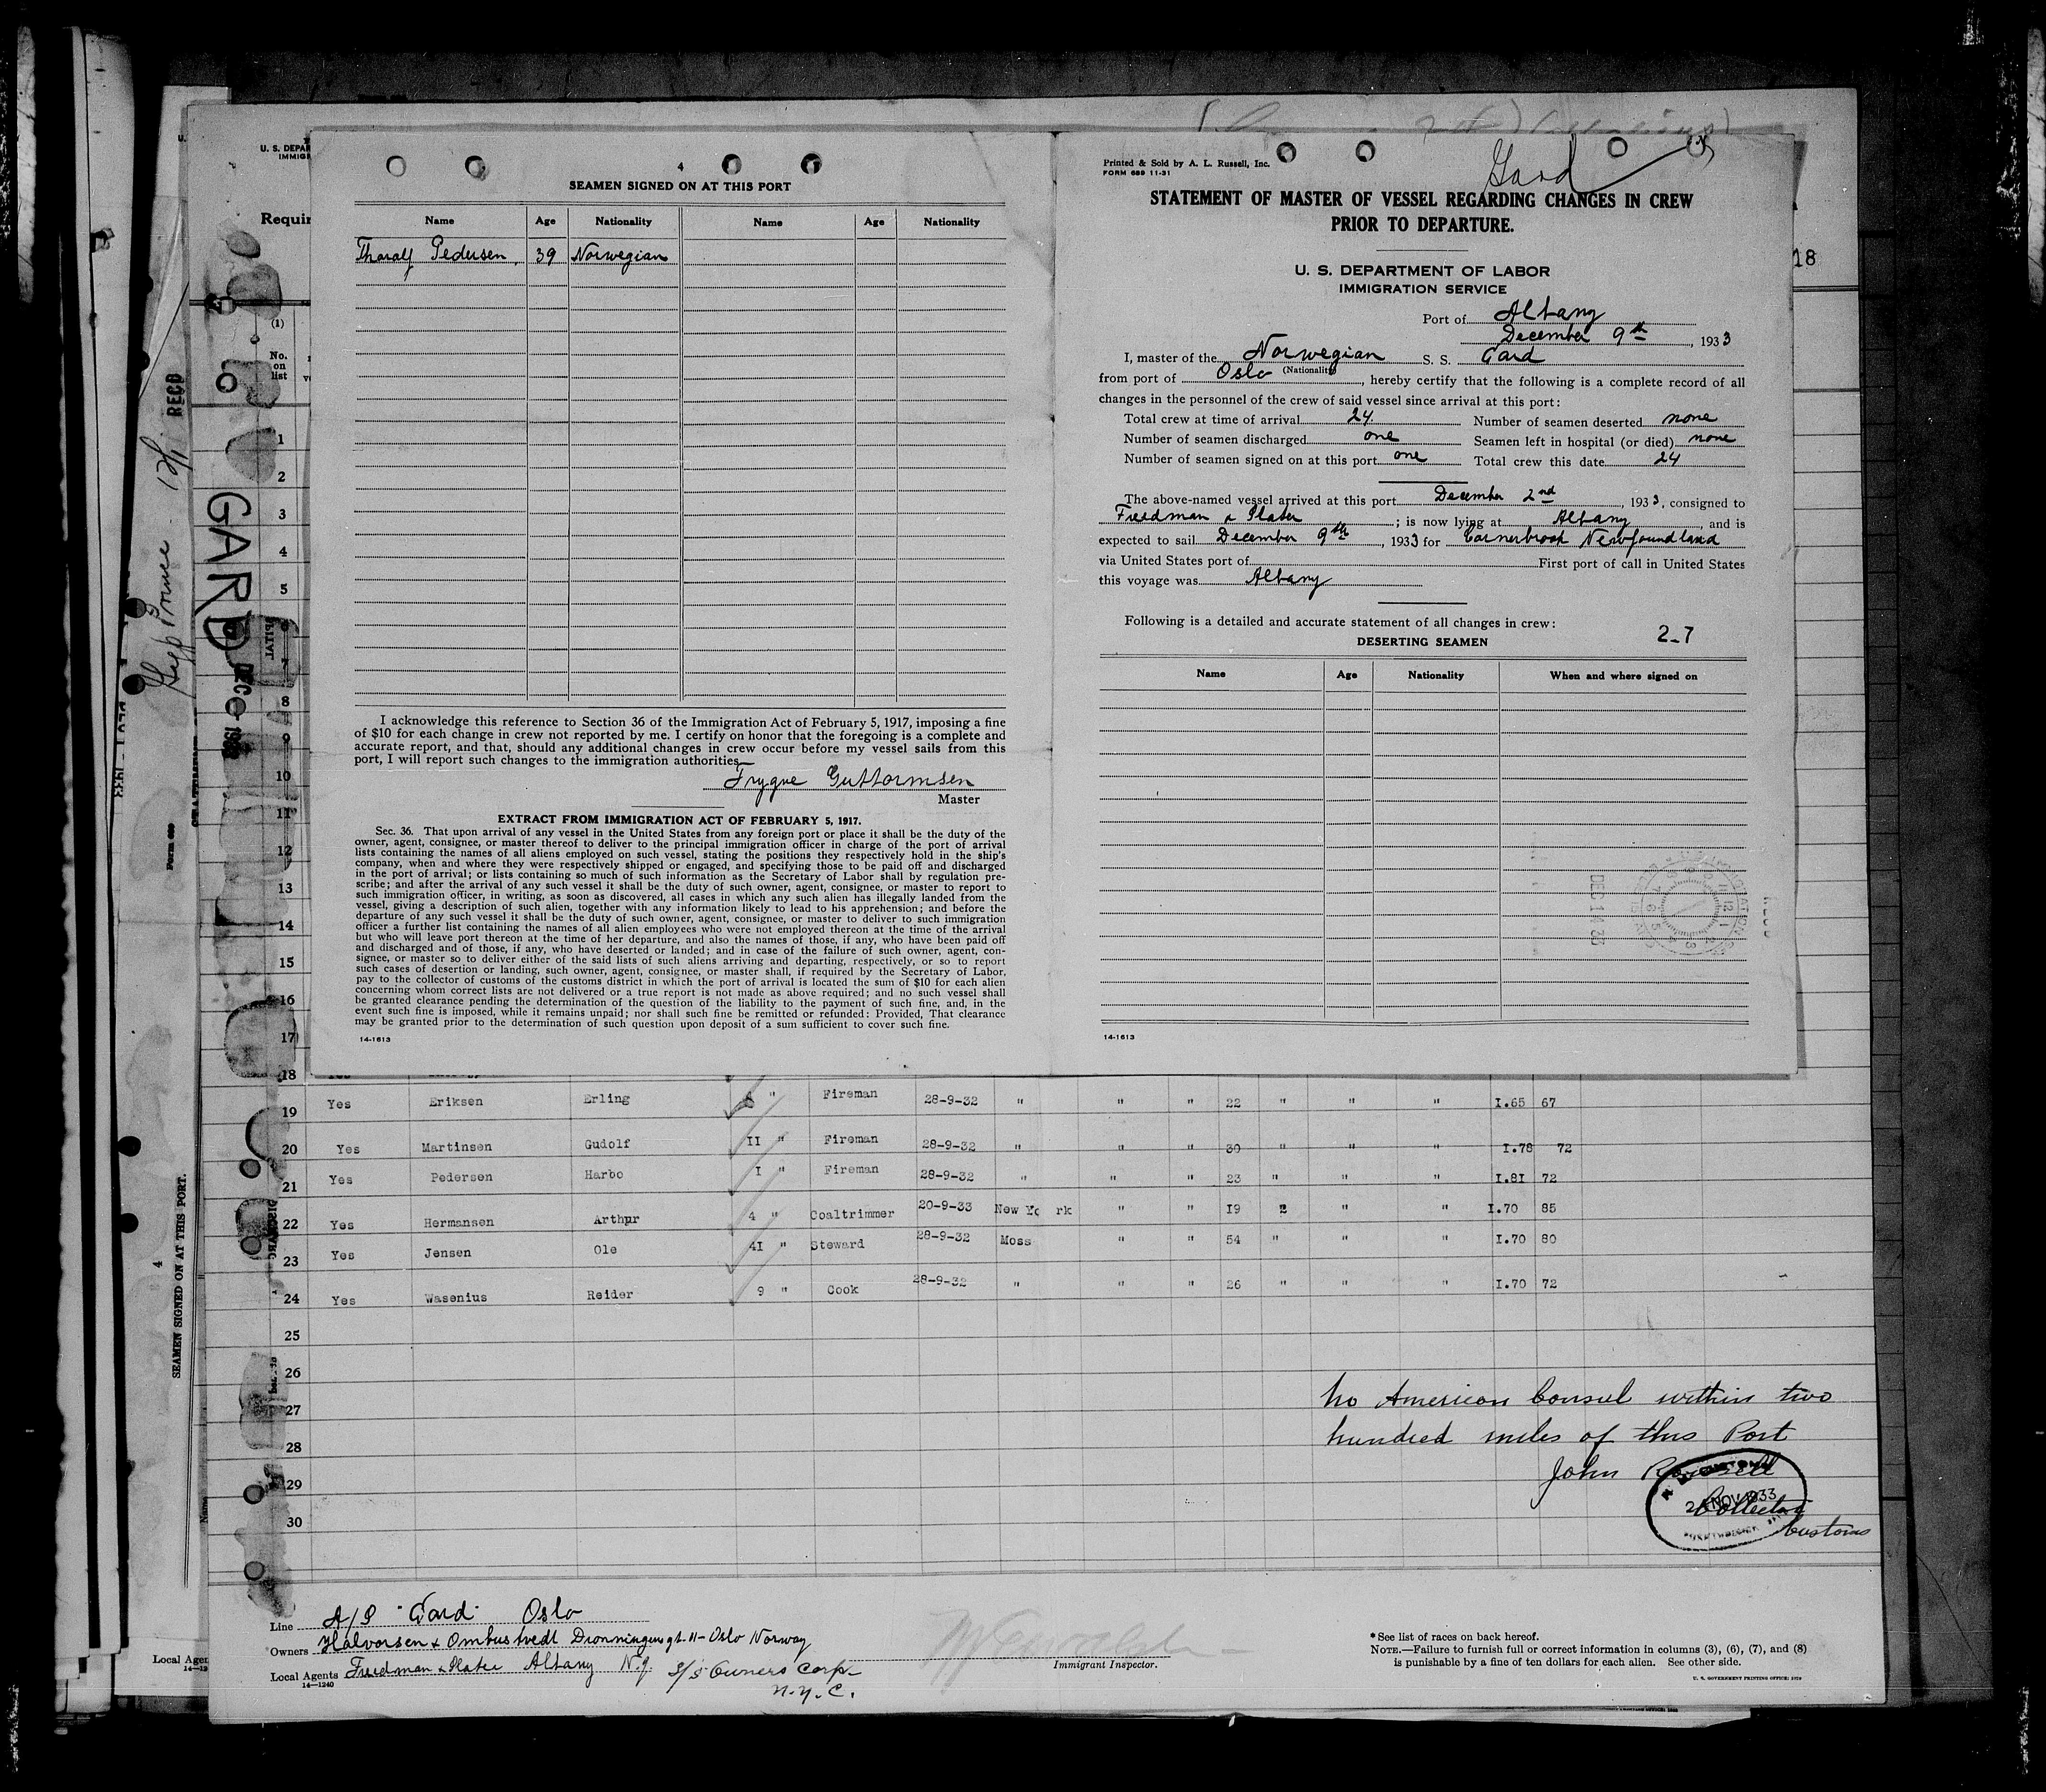 4
SEAMEN SIGNED ON AT THIS PORT
Name Age Nationality Name Age Nationality
Tharalf Pedersen, 39 Norwegian
I acknowledge this reference to Section 36 of the Immigration Act of February 5, 1917, imposing a fine
of $10 for each change in crew not reported by me. I certify on honor that the foregoing is a complete and
accurate report, and that, should any additional changes in crew occur before my vessel sails from this
port, I will report such changes to the immigration authorities
Trygve Guttormsen
Master
EXTRACT FROM IMMIGRATION ACT OF FEBRUARY 5, 1917.
Sec. 36. That upon arrival of any vessel in the United States from any foreign port or place it shall be the duty of the
owner, agent, consignee, or master thereof to deliver to the principal immigration officer in charge of the port of arrival
lists containing the names of all aliens employed on such vessel, stating the positions they respectively hold in the ship's
company, when and where they were respectively shipped or engaged, and specifying those to be paid off and discharged
in the port of arrival; or lists containing so much of such information as the Secretary of Labor shall by regulation pre-
scribe; and after the arrival of any such vessel it shall be the duty of such owner, agent, consignee, or master to report to
such immigration officer, in writing, as soon as discovered, all cases in which any such alien has illegally landed from the
vessel, giving a description of such alien, together with any information likely to lead to his apprehension; and before the
departure of any such vessel it shall be the duty of such owner, agent, consignee, or master to deliver to such immigration
officer a further list containing the names of all alien employees who were not employed thereon at the time of the arrival
but who will leave port thereon at the time of her departure, and also the names of those, if any, who have been paid off
and discharged and of those, if any, who have deserted or landed; and in case of the failure of such owner, agent, con-
signee, or master so to deliver either of the said lists of such aliens arriving and departing, respectively, or so to report
such cases of desertion or landing, such owner, agent, consignee, or master shall, if required by the Secretary of Labor,
pay to the collector of customs of the customs district in which the port of arrival is located the sum of $10 for each alien
concerning whom correct lists are not delivered or a true report is not made as above required; and no such vessel shall
be granted clearance pending the determination of the question of the liability to the payment of such fine, and, in the
event such fine is imposed, while it remains unpaid; nor shall such fine be remitted or refunded: Provided, That clearance
may be granted prior to the determination of such question upon deposit of a sum sufficient to cover such fine.
14-1613
Printed & Sold by A. L. Russell, Inc.
FORM 689 11-31
Gard
STATEMENT OF MASTER OF VESSEL REGARDING CHANGES IN CREW
PRIOR TO DEPARTURE.
U. S. DEPARTMENT OF LABOR
IMMIGRATION SERVICE
Port of Albany
December 9th, 1933
I, master of the Norwegian S. S. Gard
(Nationality)
from port of Oslo, hereby certify that the following is a complete record of all
changes in the personnel of the crew of said vessel since arrival at this port:
Total crew at time of arrival 24 Number of seamen deserted none
Number of seamen discharged one Seamen left in hospital (or died) none
Number of seamen signed on at this port one Total crew this date 24
The above-named vessel arrived at this port December 2nd, 1933, consigned to
Freedman & Slater; is now lying at Albany, and is
expected to sail December 9th, 1933 for Cornerbrook Newfoundland
via United States port of First port of call in United States
this voyage was Albany
Following is a detailed and accurate statement of all changes in crew:
2-7
DESERTING SEAMEN
Name Age Nationality When and where signed on
DEC 14 33
14-1613
U. S. DEPAR
IMMIG
Requir
18
(1)
No.
on
list
GARD
RECD
SEAMEN SIGNED ON AT THIS PORT.
4
1
2
3
4
5
7
8
9
10
11
12
13
14
15
16
17
18
19 Yes Eriksen Erling " Fireman 28-9-32 " " " 22 " " " I.65 67
20 Yes Martinsen Gudolf II " Fireman 28-9-32 " " " 30 " " " I.78 72
21 Yes Pedersen Harbo I " Fireman 28-9-32 " " " 23 " " " I.8I 72
22 Yes Hermansen Arthur 4 " Coaltrimmer 20-9-33 New York " " I9 " " " I.70 85
23 Yes Jensen Ole 4I " Steward 28-9-32 Moss " " 54 " " " I.70 80
24 Yes Wasenius Reider 9 " Cook 28-9-32 " " " 26 " " " I.70 72
25
26
27
28
29
30
No American Consul within two
hundred miles of this Port
John Roussell
Collector
Customs
NOV 1933
Line A/S "Gard" Oslo
Owners Halvorsen & Ombustvedt Dronningensgt. 11 - Oslo Norway
Local Agents Freedman & Slater Albany N.Y. S/S Owners Corp
N.Y.C.
14-1240
Immigrant Inspector.
* See list of races on back hereof.
NOTE.—Failure to furnish full or correct information in columns (3), (6), (7), and (8)
is punishable by a fine of ten dollars for each alien. See other side.
U. S. GOVERNMENT PRINTING OFFICE: 1929
Local Agen